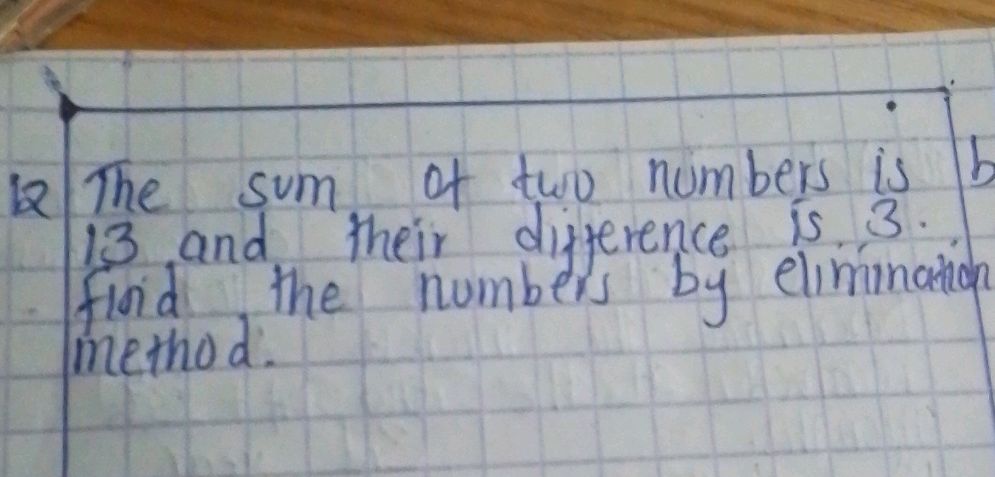 12 The sum of two numbers is b
13 and their difference is 3.
find the numbers by elimination
method.